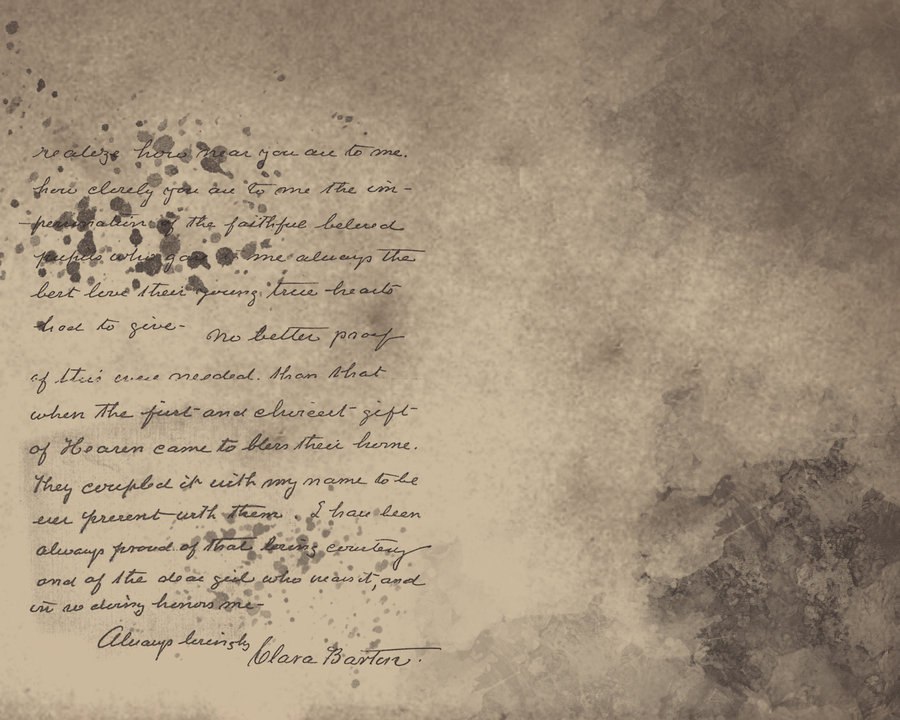 realize how near you are to me.
how closely you are to me the im-
personation of the faithful beloved
pupils who gave to me always the
best love their young true hearts
had to give-
No better proof
of this were needed. than that
when the first and choicest gift
of Heaven came to bless their home.
They coupled it with my name to be
ever present with them. I have been
always proud of that loving courtesy
and of the dear girl who wears it, and
in so doing honors me-
Always lovingly
Clara Barton.